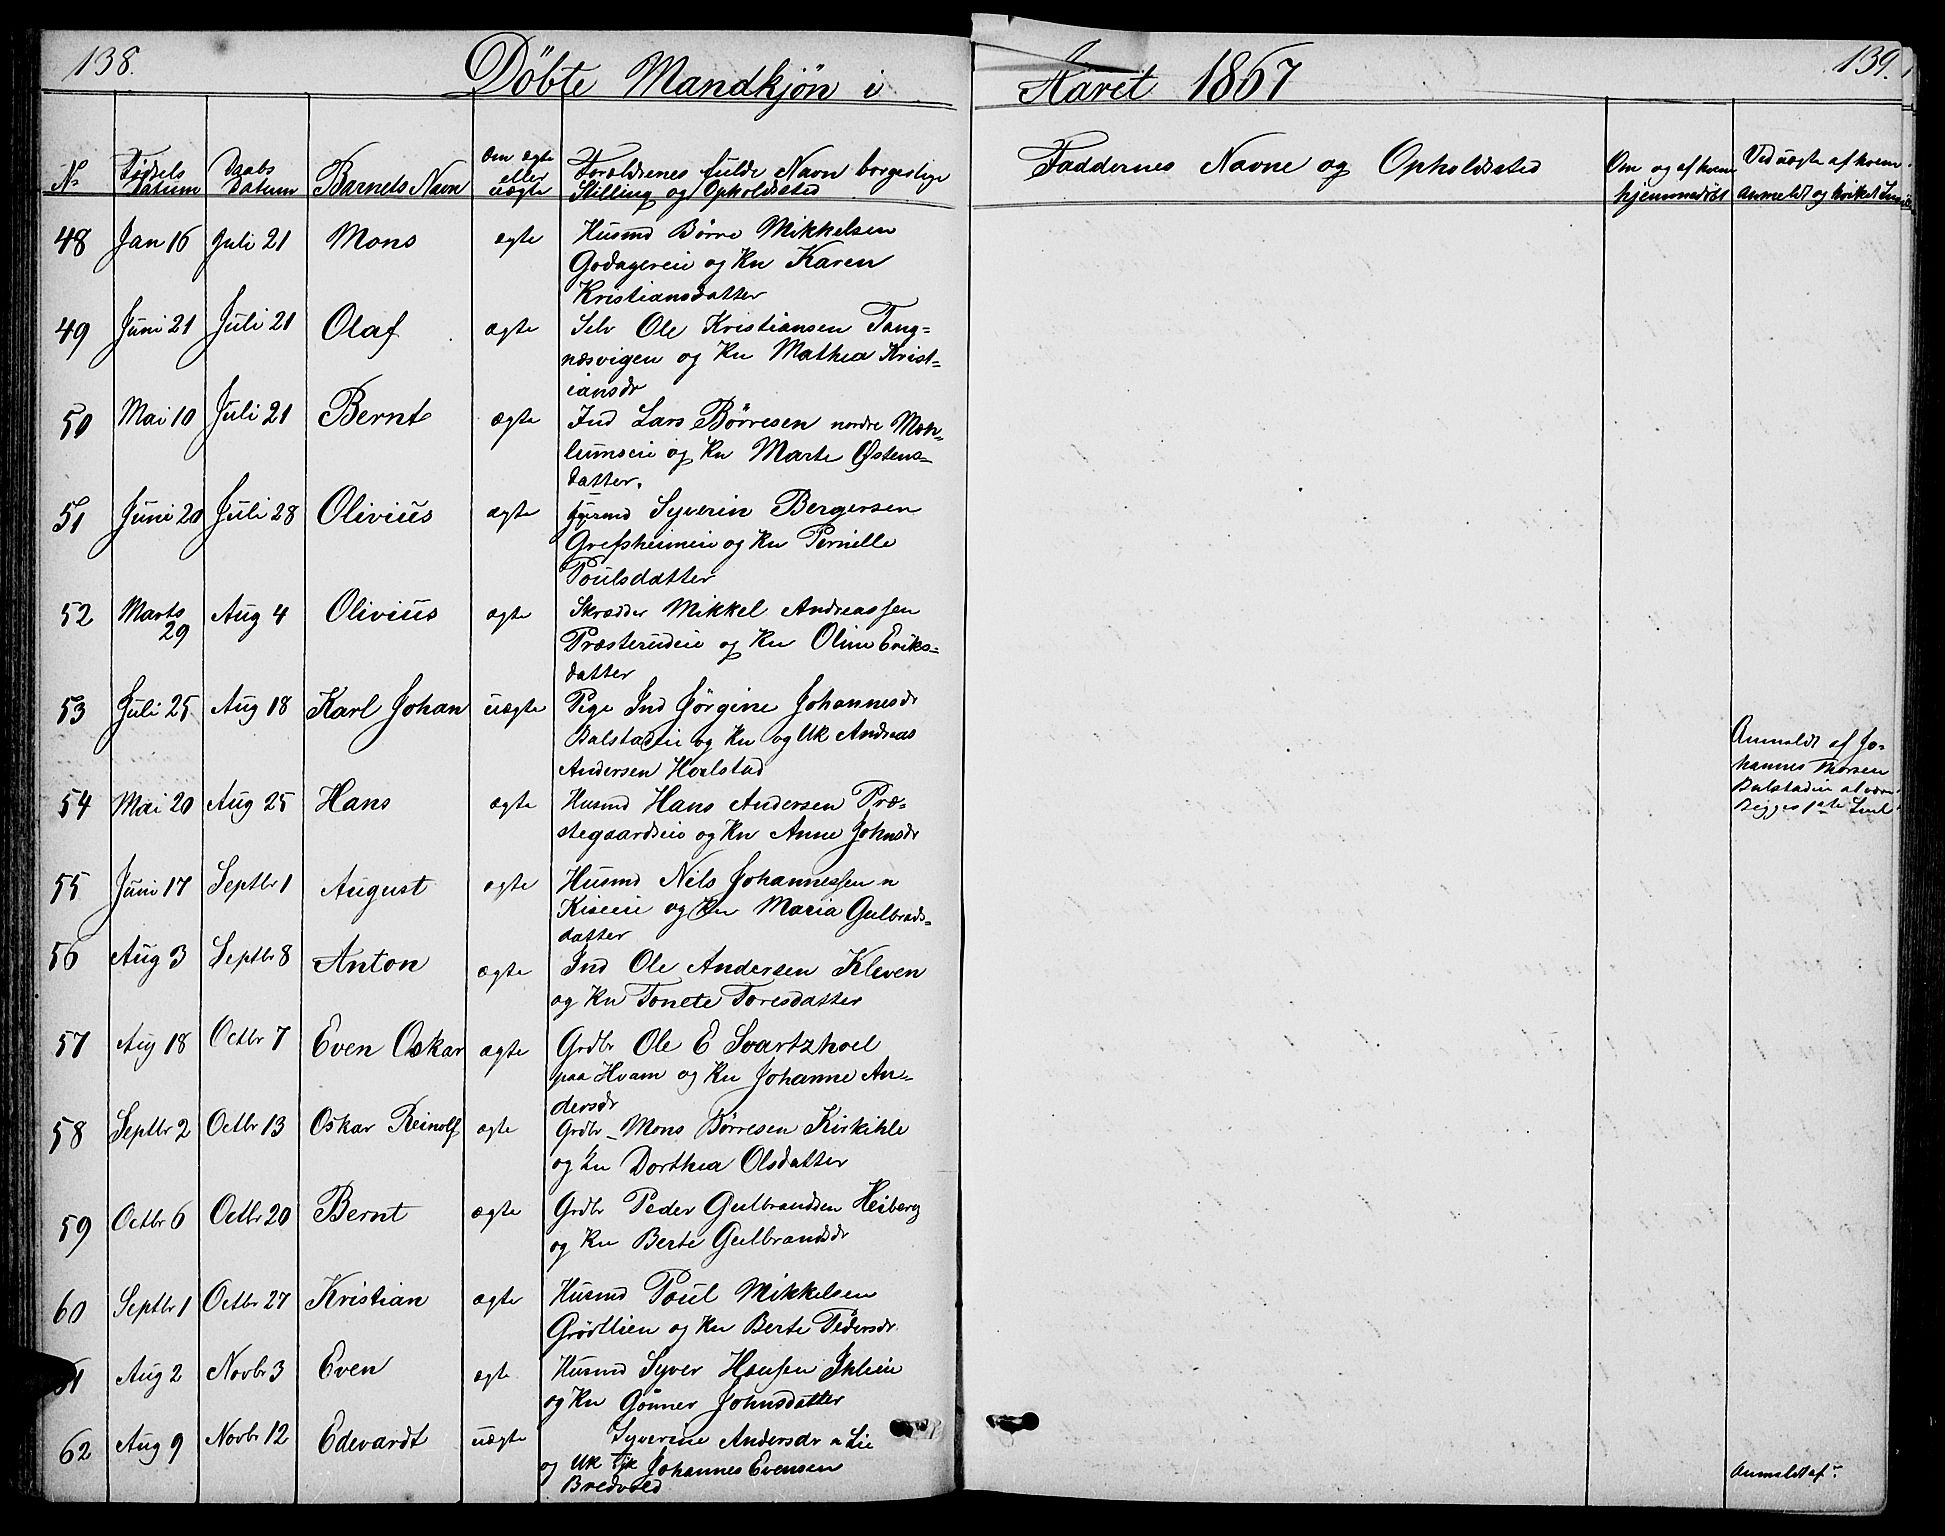 138.
Döbte Mandkjön i
Aaret 1867
139.
No
Födsels Datum
Daabs Datum
Barnets Navn
Om ægte eller uægte
Forældrenes fulde Navn borgerlige
Stilling og Opholdssted
Faddernes Navne og Opholdssted
Om og af hvem
hjemmedöbt
Ved uægte af hvem
Anmeldt og hvilket
48 Jan 16 Juli 21 Mons ægte Husmd Börre Mikkelsen
Godagereie og Ku Karen
Kristiansdatter
49 Juni 21 Juli 21 Olaf ægte Selv Ole Kristiansen Tang=
næsvigen og Ku Mathea Krist=
iansdr
50 Mai 10 Juli 21 Bernt ægte Ind Lars Börresen nordre
og Ku Marte Østens=
datter.
51 Juni 20 Juli 28 Olivius ægte Syverin Bergersen
Grefsheimeie og Ku Pernille
Poulsdatter
52 Marts 29 Aug 4 Olivius ægte Skrædder Mikkel Andreassen
Præsterudeie og Ku Oline Eriks=
datter
53 Juli 25 Aug 18 Karl Johan uægte Pige Ind Jörgine Johannesdr
Balstadeie og Ku og Uk Andreas
Andersen Hoelstad
Anmeldt af Jo=
hannes Thorsen
Balstadeie at være
Begges 1ste
54 Mai 20 Aug 25 Hans ægte Husmd Hans Andersen Præ=
stegaardseie og Ku Anne Johnsdr
55 Juni 17 Septbr 1 August ægte Husmd Nils Johannessen n
Kiseeie og Ku Maria Gulbrads=
datter
56 Aug 3 Septbr 8 Anton ægte Ind Ole Andersen Kleven
og Ku Tonete Toresdatter
57 Aug 18 Octbr 7 Even Oskar ægte Grdbr Ole E Svartzhoel
paa Hvam og Ku Johanne An=
dersdr
58 Septbr 2 Octbr 13 Oskar Reinolf ægte Grdbr Mons Börresen Kirkihle
og Ku Dorthea Olsdatter
59 Octbr 6 Octbr 20 Bernt ægte Grdbr Peder Gulbrandsen Heiberg
og Ku Berte Gulbrandsdr
60 Septbr 1 Octbr 27 Kristian ægte Husmd Poul Mikkelsen
Grödtlien og Ku Berte Pedersdr
61 Aug 2 Novbr 3 Even ægte Husmd Syver Hansen Ihleeie
og Ku Gönner Johnsdatter
62 Aug 9 Novbr 12 Edevardt uægte Syverine Andersdr n Lie
og Uk Tjk Johannes Evensen
Bredvold
Anmeldt af